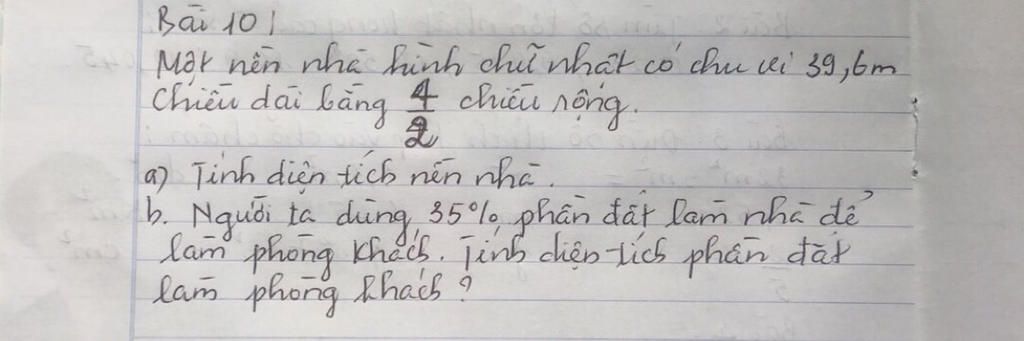 Bài 10
Một nền nhà hình chữ nhật có chu vi 39,6m
Chiều dài bằng 4/2 chiều rộng.
a) Tính diện tích nền nhà.
b. Người ta dùng 35% phần đất làm nhà để
làm phòng khách. Tính diện tích phần đất
làm phòng khách?